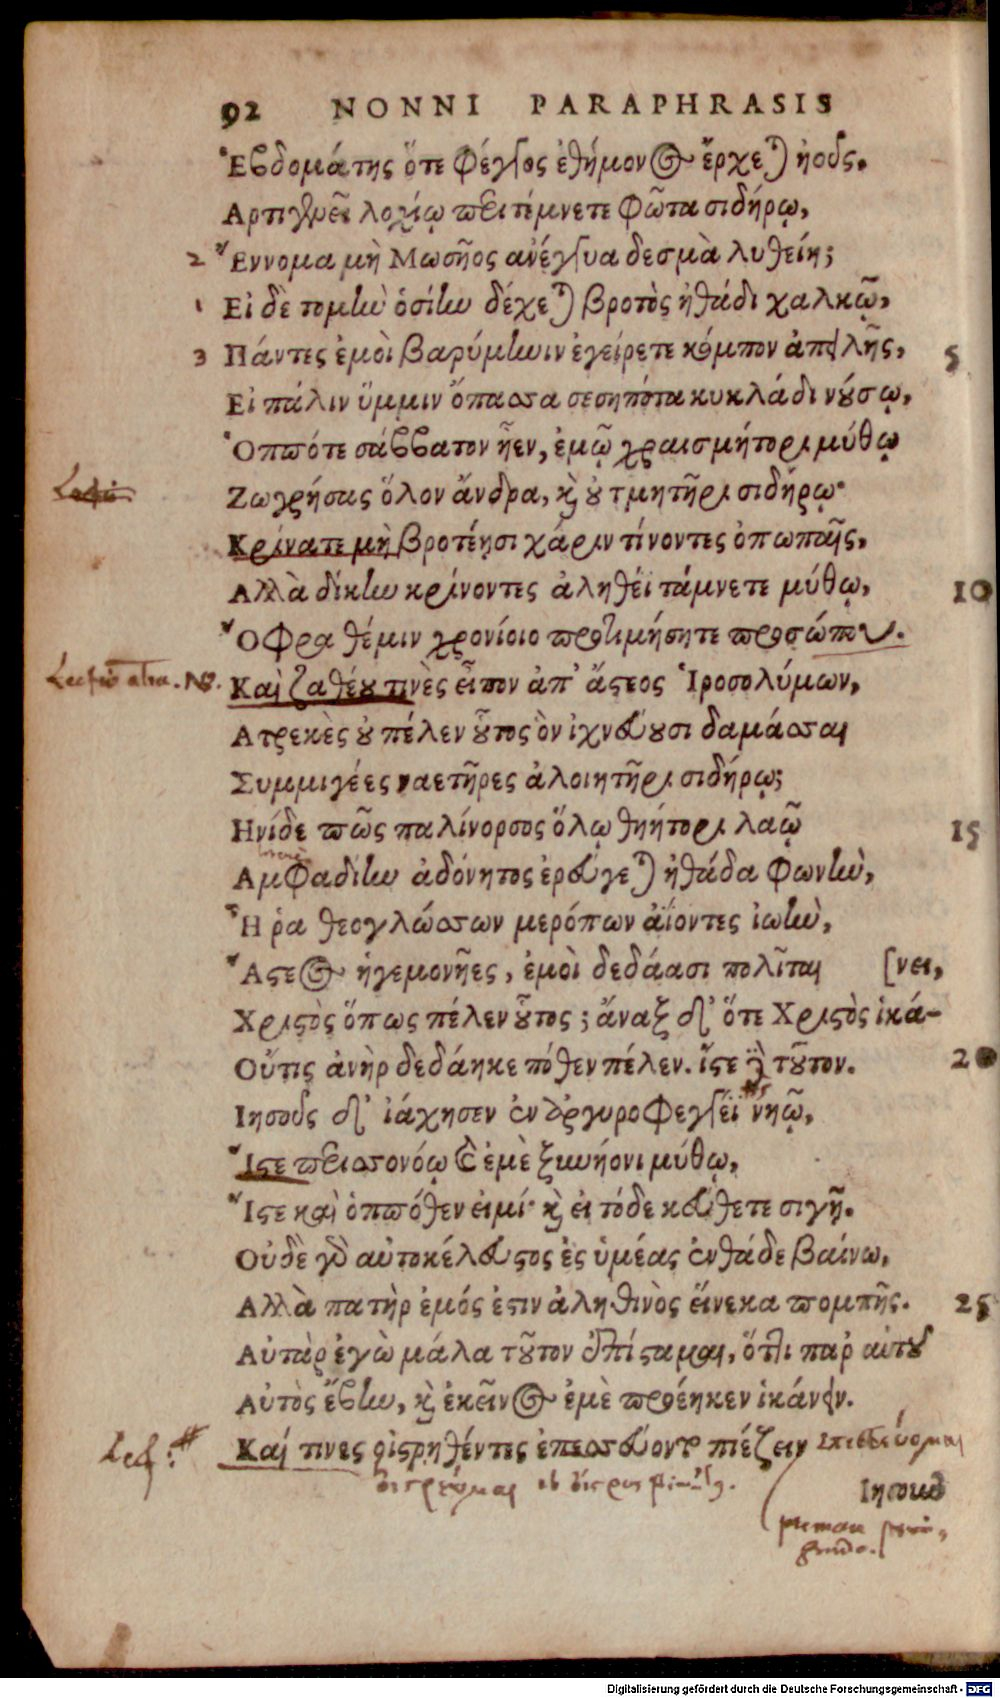 92 NONNI PARAPHRASIS
Ἑβδομάτης ὅτε φέγγος ἐθήμονος ἔρχεται ἠοῦς.
Αρτιγενεῖ λοχίῳ περιτέμνετε φῶτα σιδήρῳ,
2 Ἔννομα μὴ Μωσῆος ανέγγυα δεσμὰ λυθείη;
1 Εἰ δὲ τομὴν ὁσίην δέχεται βροτὸς ἠθάδι χαλκῷ,
3 Πάντες ἐμοὶ βαρύμηνιν ἐγείρετε κόμπον ἀπειλῆς, 5
Εἰ πάλιν ὔμμιν ὄπασσα σεσηπότα κυκλάδι νούσῳ,
Ὁππότε σάββατον ἦεν, ἐμῷ χραισμήτορι μύθῳ
Lectio
Ζωγρήσας ὅλον ἄνδρα, καὶ οὐ τμητῆρι σιδήρῳ·
Κρίνατε μὴ βροτέῃσι χάριν τίνοντες ὀπωπαῖς,
Αλλὰ δίκην κρίνοντες ἀληθέϊ τάμνετε μύθῳ, 10
Ὄφρα θέμιν χρονίοιο προτιμήσητε προσώπου.
Lectio alia. NB. Καὶ ζαθέου τινὲς εἶπον ἀπ' ἄστεος Ἱροσολύμων,
Ατρεκὲς οὐ πέλεν οὗτος ὃν ἰχνεύουσι δαμάσσαι
Συμμιγέες ναετῆρες ἀλοιητῆρι σιδήρῳ;
Ηνίδε πῶς παλίνορσος ὅλῳ θηήτορι λαῷ 15
Αμφαδίην ἀδόνητος ἐρεύγεται ἠθάδα φωνὴν,
Ἦ ῥα θεογλώσσων μερόπων ἀΐοντες ἰωὴν,
Ἄστεος ἡγεμονῆες, ἐμοὶ δεδάασι πολῖται [νει,
Χριστὸς ὅπως πέλεν οὗτος; ἄναξ δ' ὅτε Χριστὸς ἱκά-
Οὔτις ἀνὴρ δεδάηκε πόθεν πέλεν. ἴστε δὲ τοῦτον. 20
Ιησοῦς δ' ἰάχησεν ἐν ἀργυροφεγγέϊ νηῷ,
Ἴστε περισσονόῳ καὶ ἐμὲ ξυνήονι μύθῳ,
Ἴστε καὶ ὁππόθεν εἰμί· καὶ εἰ τόδε κεύθετε σιγῇ.
Οὐδὲ γὰρ αὐτοκέλευστος ἐς ὑμέας ἐνθάδε βαίνω,
Αλλὰ πατὴρ ἐμός ἐστιν ἀληθινὸς εἵνεκα πομπῆς. 25
Αὐτὰρ ἐγὼ μάλα τοῦτον ἐπίσταμαι, ὅττι παρ' αὐτοῦ
Αὐτὸς ἔβην, καὶ ἐκεῖνος ἐμὲ προέηκεν ἱκάνειν.
Lec: Καί τινες οἰστρηθέντες ἐπεσσεύοντο πιέζειν
Ιησοῦν